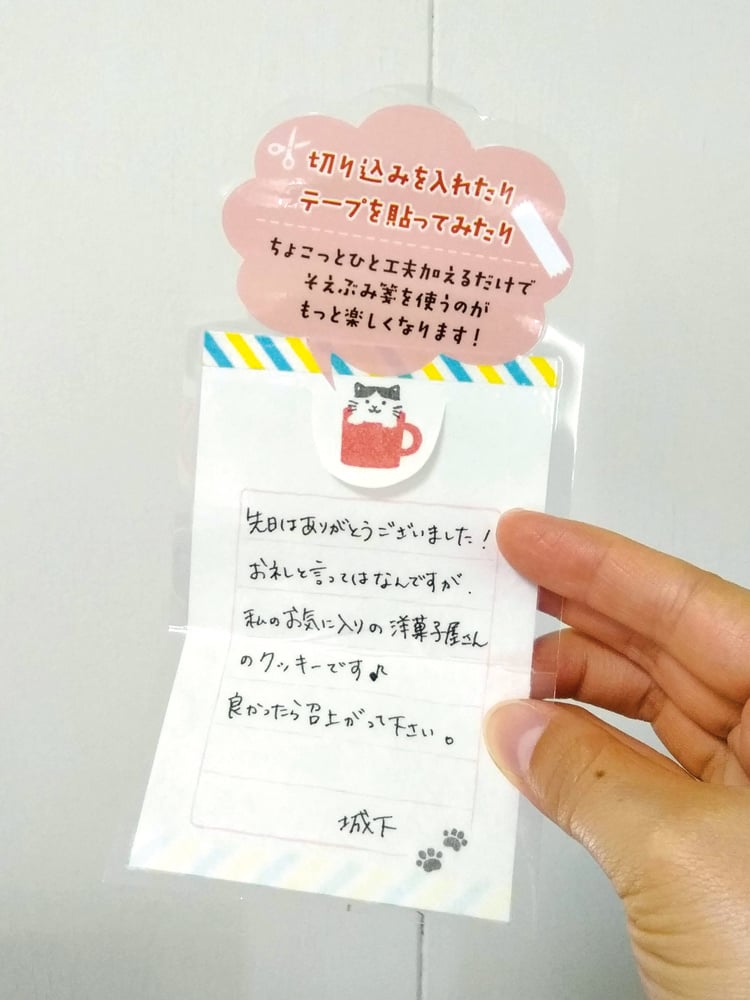 切り込みを入れたり
テープを貼ってみたり
ちょこっとひと工夫加えるだけで
そえぶみ箋を使うのが
もっと楽しくなります!
先日はありがとうございました!
お礼と言ってはなんですが、
私のお気に入りの洋菓子屋さん
のクッキーです♪
良かったら召上がって下さい。
城下